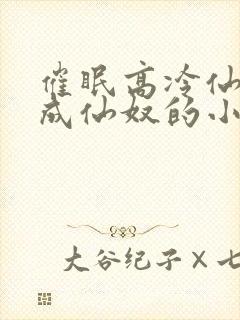 催眠高冷仙
成仙奴的小
大谷纪子×七